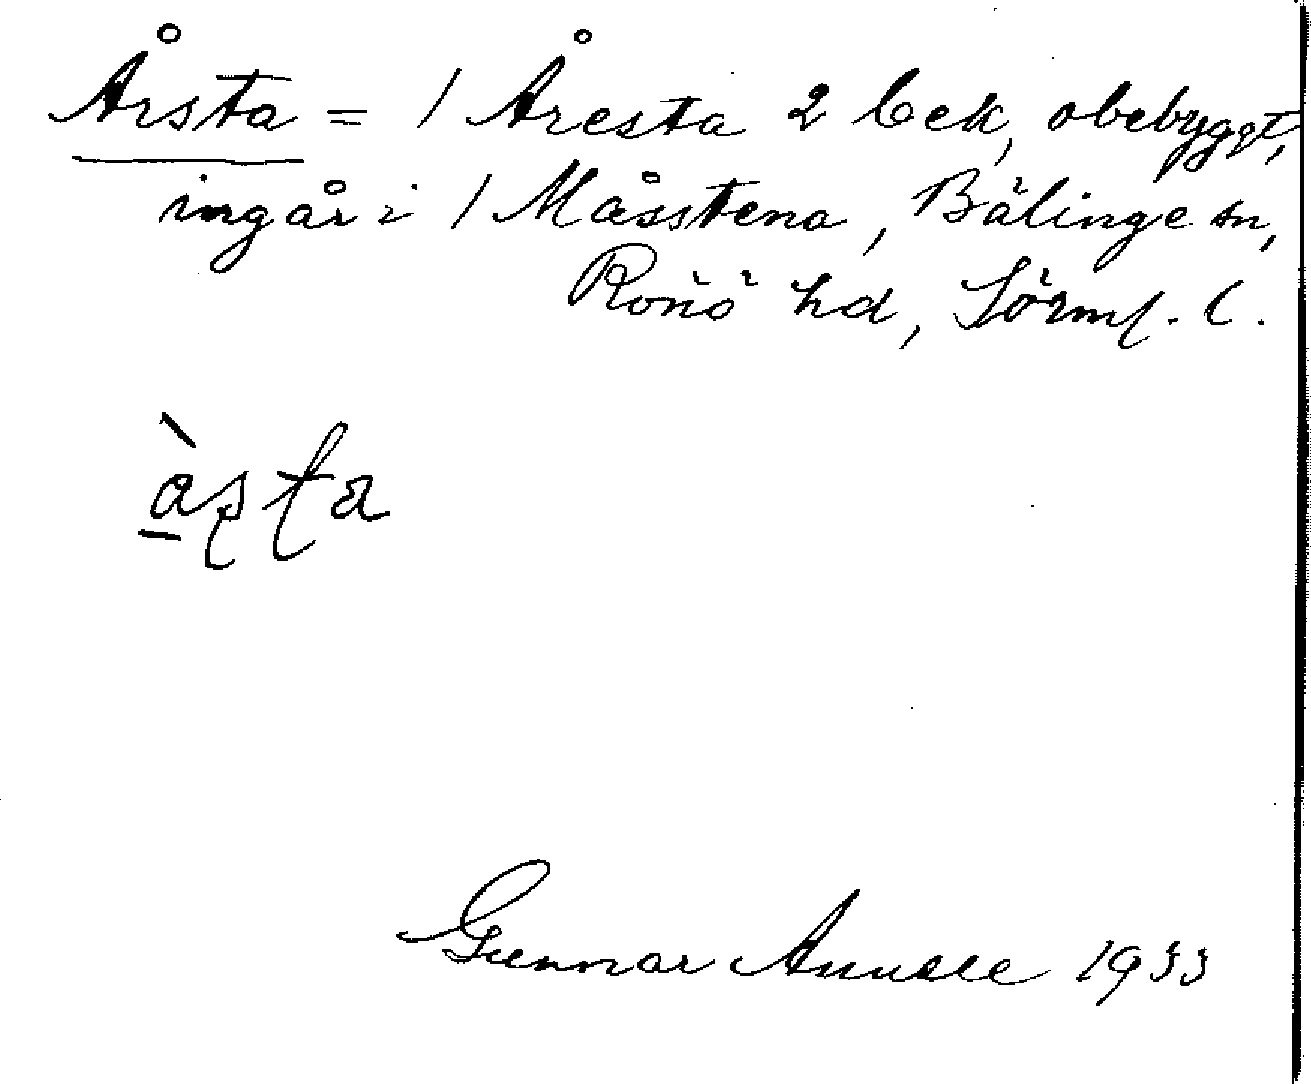 Årsta = / Åresta 2 bek, obebyggt,
ingår i / Måsstena, Bälinge sn,
Rönö hd, Sörml. l.
àsta
Gunnar Annell 1933